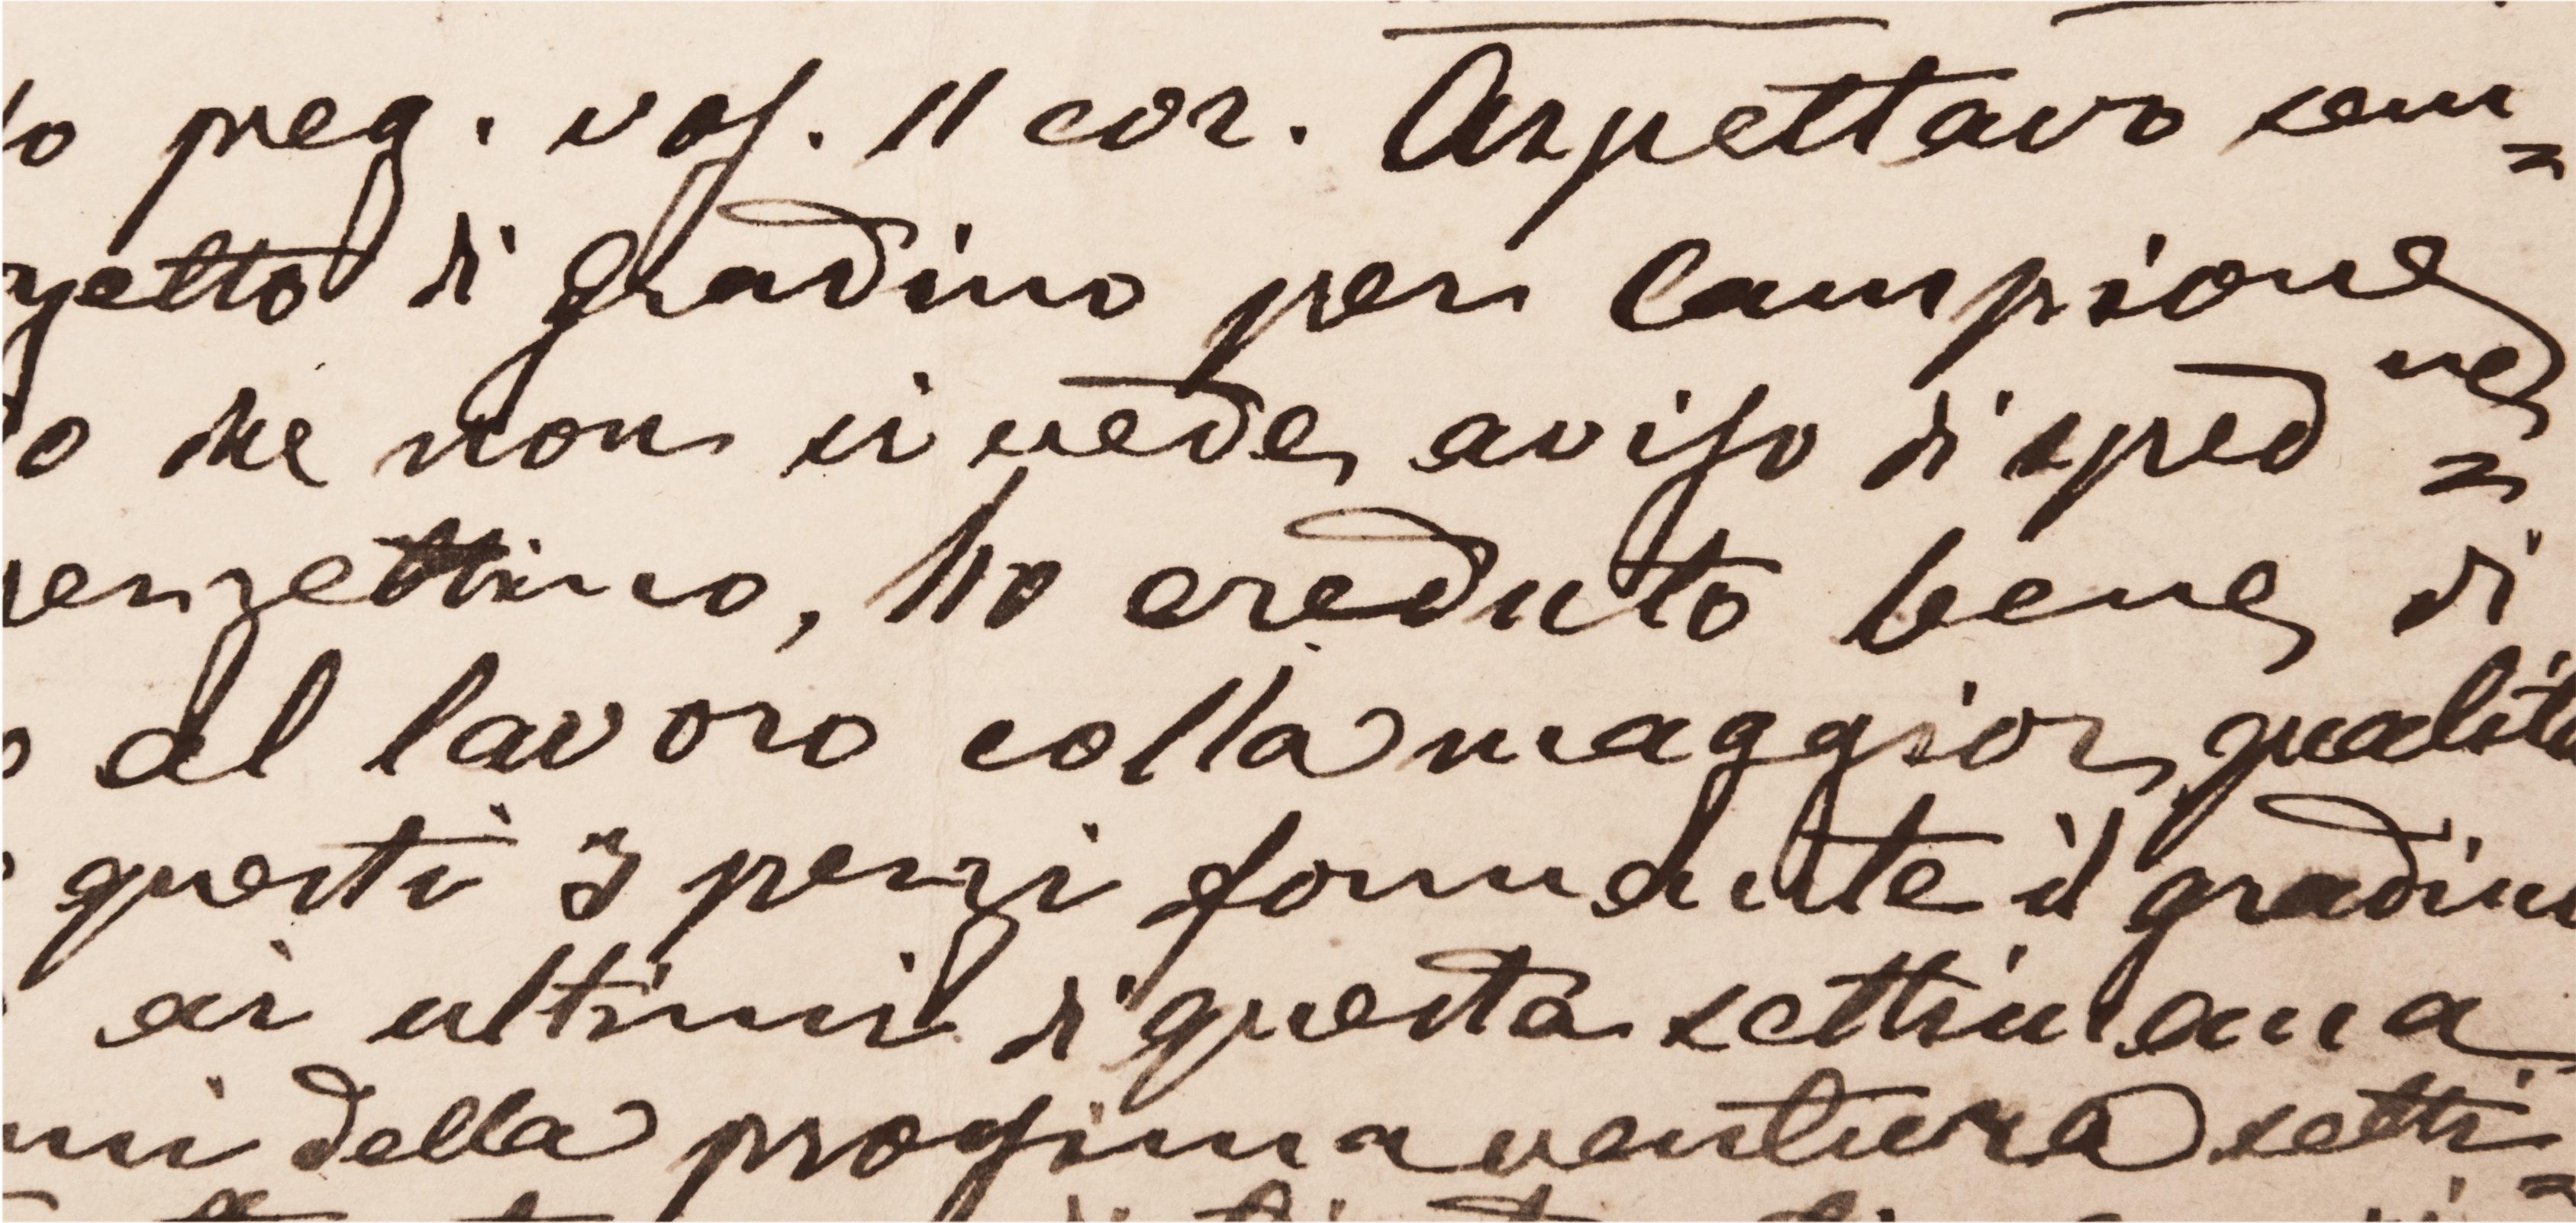 lo preg. vos. 11 cor. Aspettavo sem=
getto di gradino per Campione
o che non si vede, aviso di sped=
ne
pensettino, ho creduto bene di
o al lavoro colla maggior qualità
questi 3 pezzi formante il gradino
ai ultimi di questa settimana
mi della prossima ventura setti=